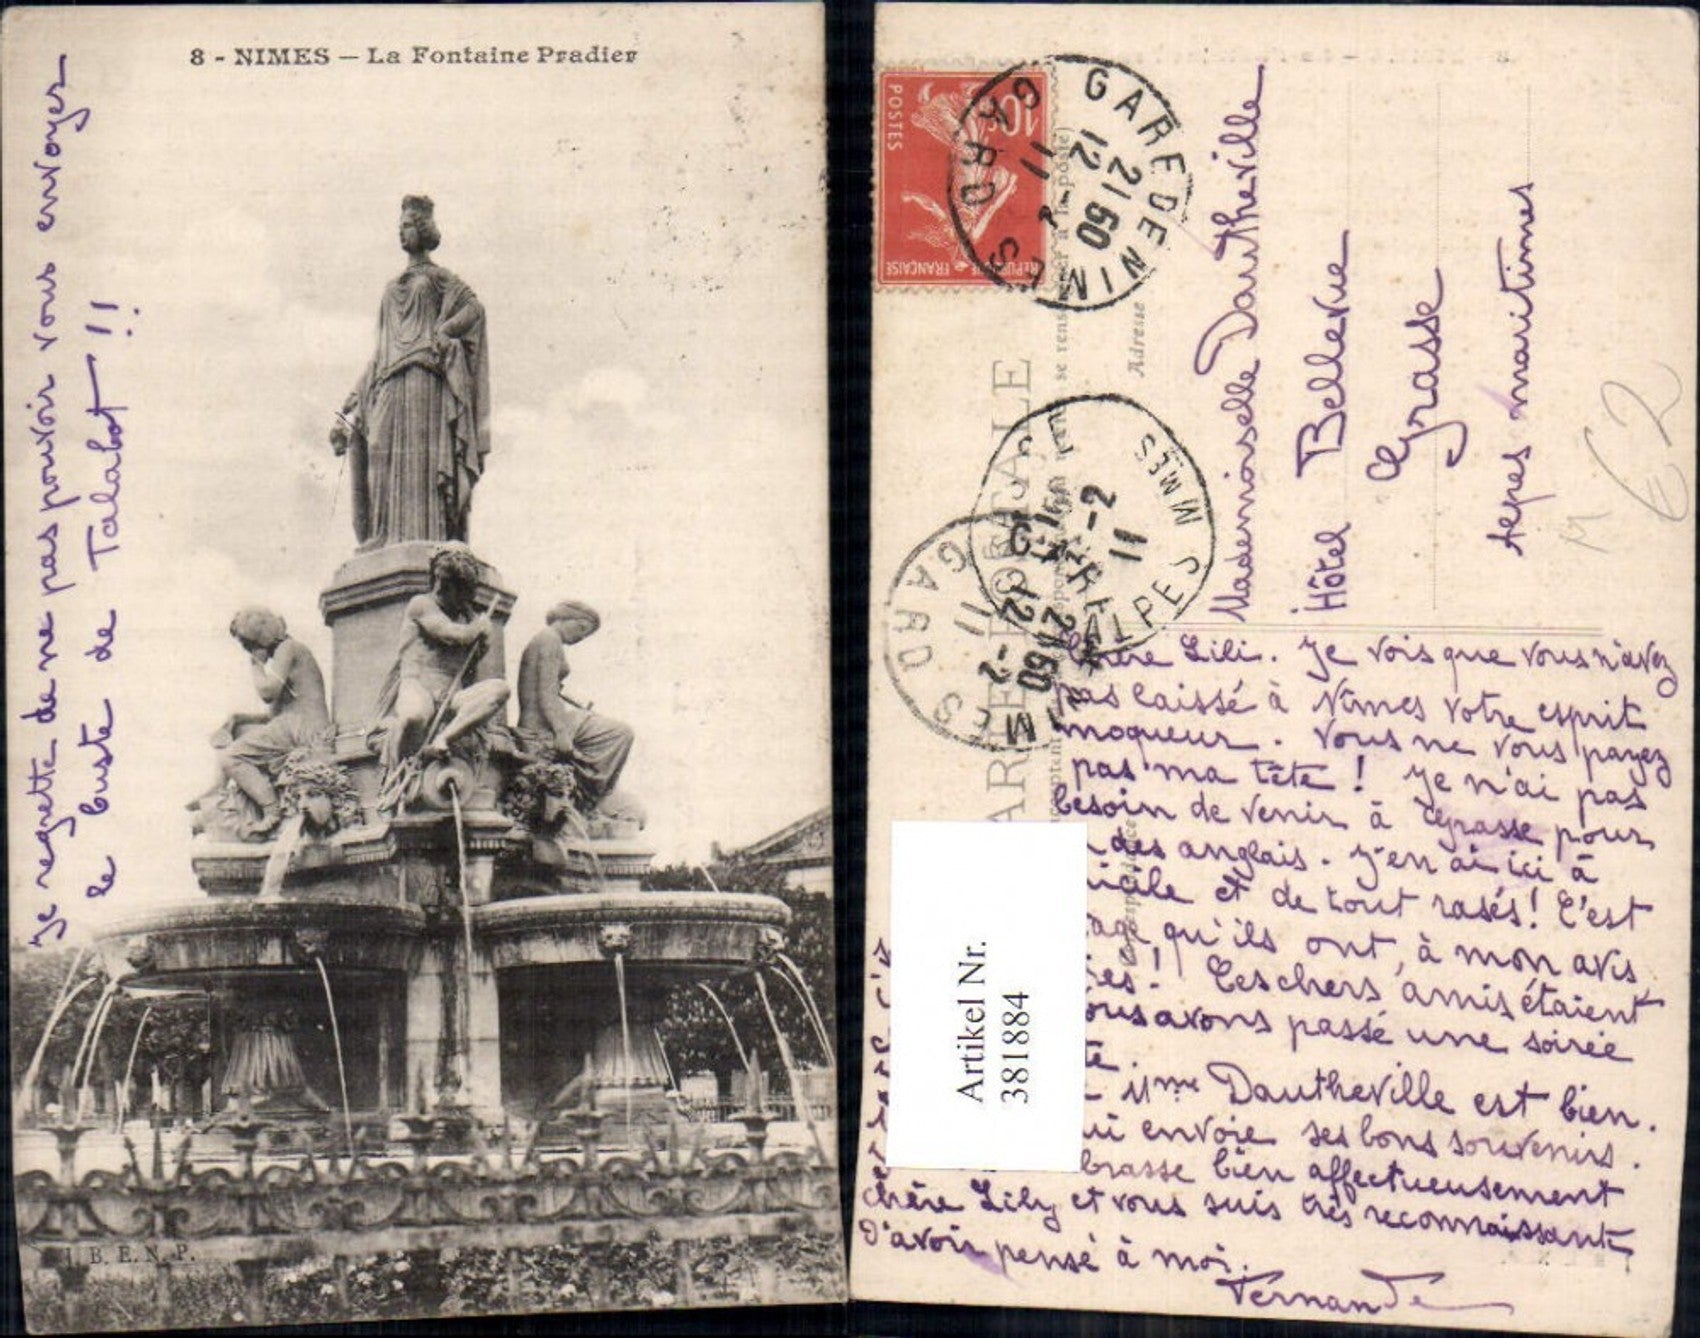 8 - NIMES — La Fontaine Pradier
Je regrette de ne pas pouvoir vous envoyer
le buste de Talabot !!
J. B. E. N. P.
POSTES
10c
REPUBLIQUE FRANÇAISE
GARE DE NIMES
GARD
12
2150
11 -2
Adresse
Mademoiselle Dautheville
Hôtel Bellevue
Grasse
Alpes maritimes
€2
-2
11
GARE DE NIMES
GARD
12 2150
11 -2
Chère Lili. Je vois que vous n'avez
pas laissé à Nîmes votre esprit
moqueur. Vous ne vous payez
pas ma tête ! Je n'ai pas
besoin de venir à Grasse pour
des anglais. J'en ai ici à
et de tout rasés ! C'est
qu'ils ont, à mon avis,
! Ces chers amis étaient
avons passé une soirée
Mme Dautheville est bien.
envoie ses bons souvenirs.
bien affectueusement
chère Lily et vous suis très reconnaissante
d'avoir pensé à moi.
Fernande
Artikel Nr.
381884